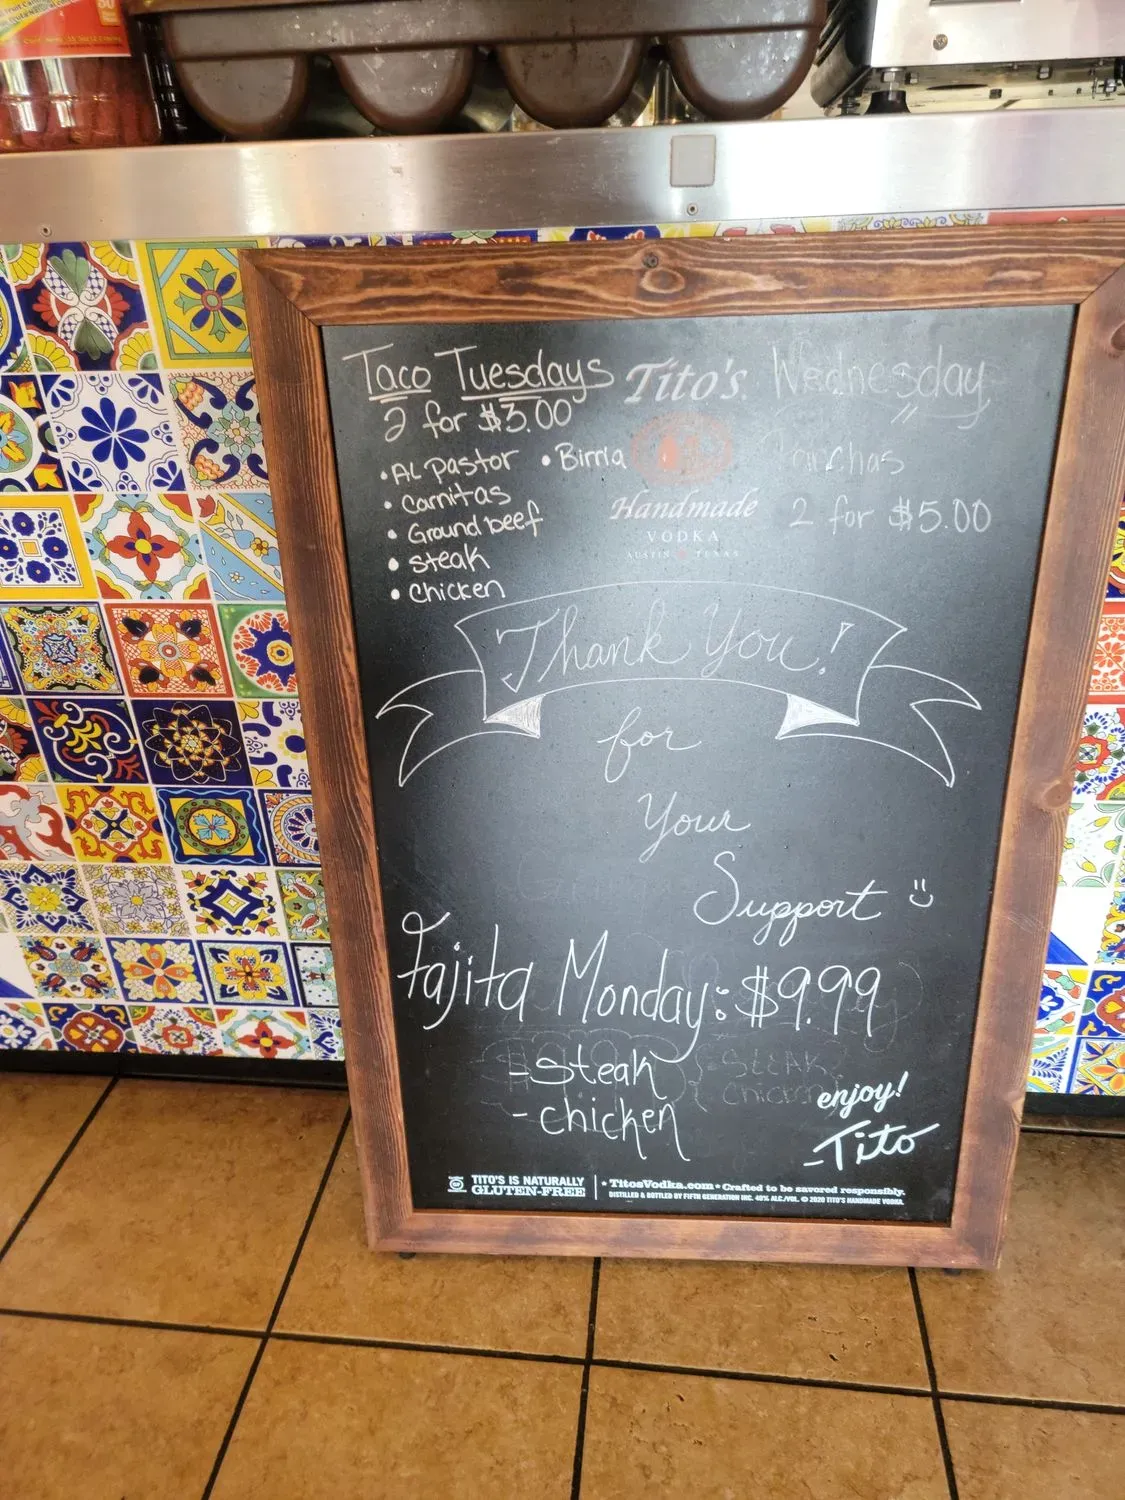 Taco Tuesdays
2 for $3.00
• AL Pastor
• Birria
• Carnitas
• Ground beef
• steak
• chicken
Tito's
Handmade
VODKA
AUSTIN TEXAS
Wednesday
2 for $5.00
Thank You!
for
Your
Support
Fajita Monday: $9.99
- steak
- chicken
STEAK
chicken
enjoy!
-Tito
TITO'S IS NATURALLY
GLUTEN-FREE
• TitosVodka.com • Crafted to be savored responsibly.
DISTILLED & BOTTLED BY FIFTH GENERATION INC. 40% ALC./VOL. © 2020 TITO'S HANDMADE VODKA.